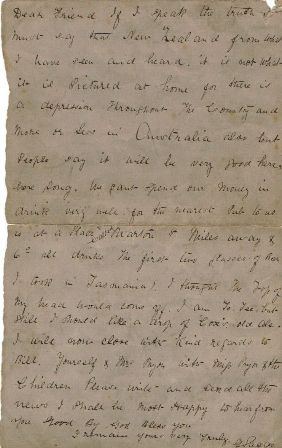 Dear Friend If I speak the truth I
must say that New Zealand from what
I have seen and heard. it is not what
it is Pictured at home for there is
a depression throughout The Country and
more or less in Australia also but
People say it will be very good here
ere long. We cant spend our Money in
drink very well for the nearest Pub to us
is at a Place Marton 5 Miles away &
6d all drinks. The first two glasses of beer
I took in Tasmania, I thought the Top of
my head would come off. I am T.T. but
still I should like a drop of Cox's old ale.
I will now close with Kind regards to
Bill. Yourself & Mrs Pryor with Miss Pryor & the
Children Please write and send all the
news I shall be most Happy to hear from
you Good By God bless you
I remain yours very Truly